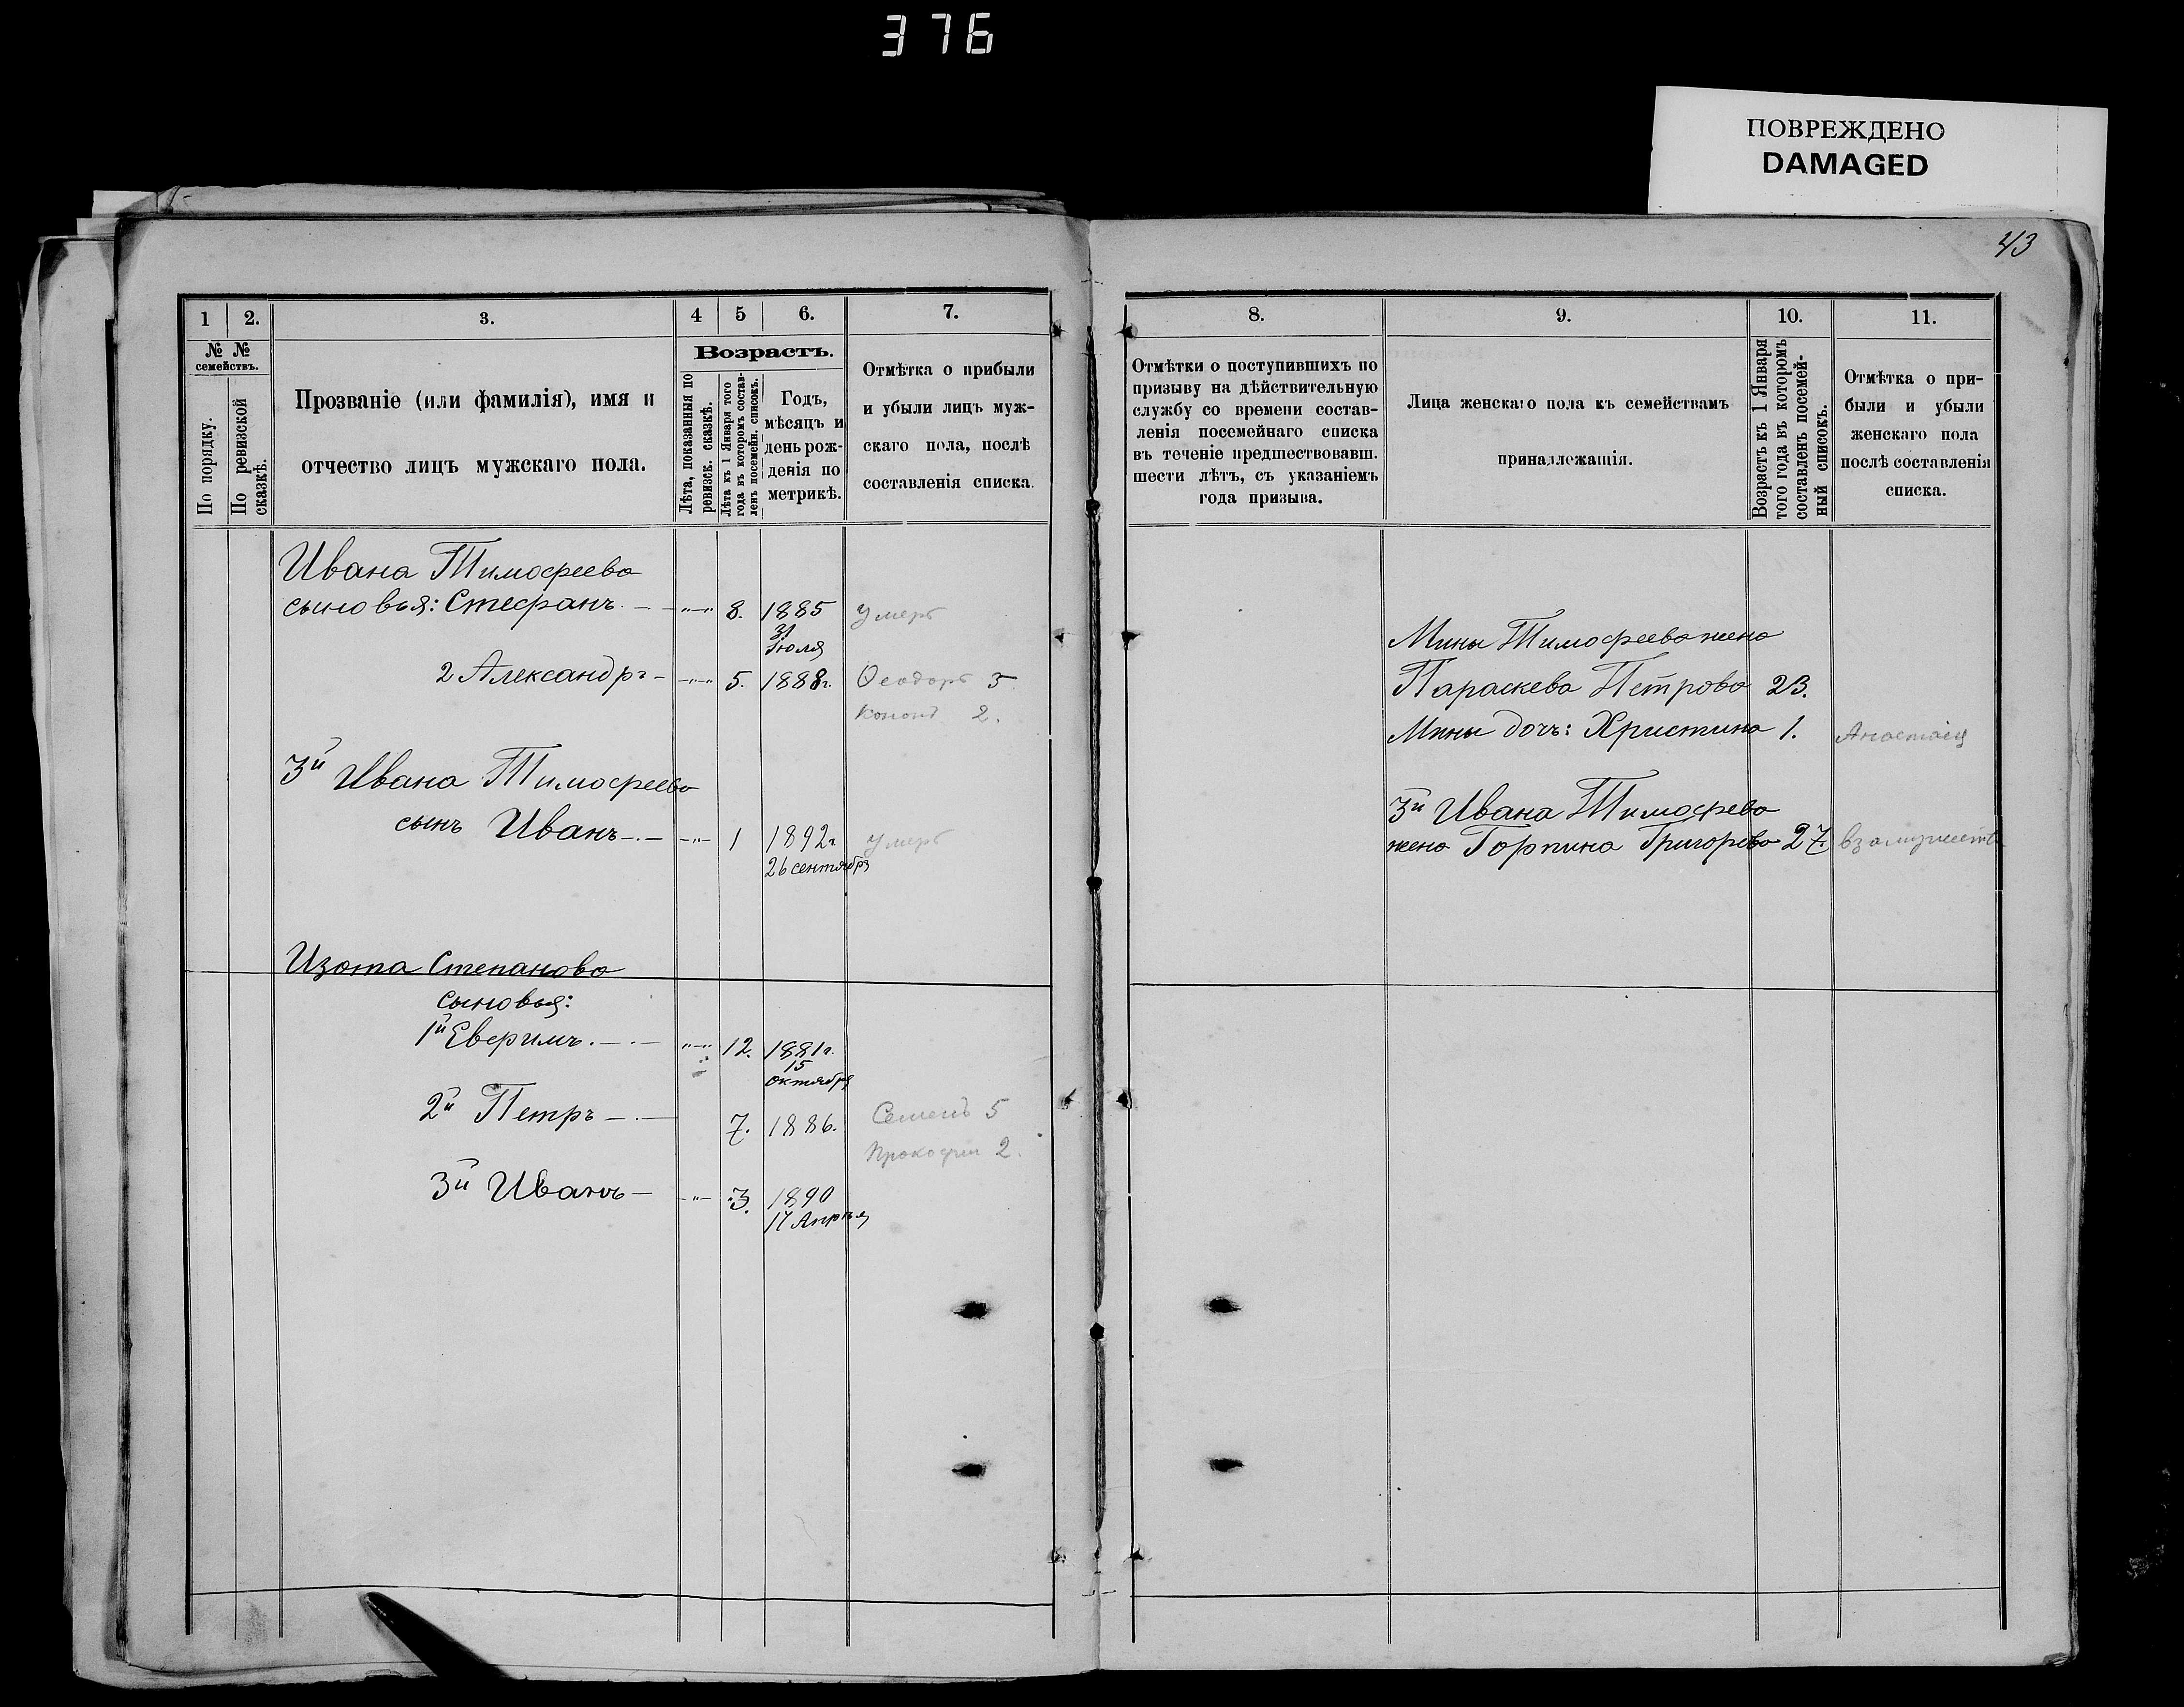 376
ПОВРЕЖДЕНО
DAMAGED
43
1
2.
3.
4
5
6.
7.
№ №
семействъ.
По порядку.
По ревизской
сказкѣ.
Прозваніе (или фамилія), имя и
отчество лицъ мужскаго пола.
Возрастъ.
Лѣта, показанныя по
ревизск. сказкѣ.
Лѣта къ 1 Января того
года въ которомъ состав-
ленъ посемейн. списокъ.
Годъ,
мѣсяцъ и
день рож-
денія по
метрикѣ.
Отмѣтка о прибыли
и убыли лицъ муж-
скаго пола, послѣ
составленія списка.
Ивана Тимофеева
сыновья: Стефанъ 8. 1885 умеръ
31
Іюля
2 Александръ 5. 1888г. Ѳеодоръ 5
Кононъ 2.
3й Ивана Тимофеева
сынъ Иванъ 1 1892г умеръ
26 сентября
Изота Степанова
сыновья:
1й Евфимъ 12. 1881г.
15
октября
2й Петръ 7. 1886. Семенъ 5
Прокофий 2.
3й Иванъ 3. 1890
17 Апрѣля
8.
9.
10.
11.
Отмѣтки о поступившихъ по
призыву на дѣйствительную
службу со времени состав-
ленія посемейнаго списка
въ теченіе предшествовавш.
шести лѣтъ, съ указаніемъ
года призыва.
Лица женскаго пола къ семействамъ
принадлежащія.
Возрастъ къ 1 Января
того года въ которомъ
составленъ посемей-
ный списокъ.
Отмѣтка о при-
были и убыли
женскаго пола
послѣ составленія
списка.
Мины Тимофеева жена
Параскева Петрова 23.
Мины дочь: Христина 1.
3й Ивана Тимофева
жена Горпина Григорева 27.